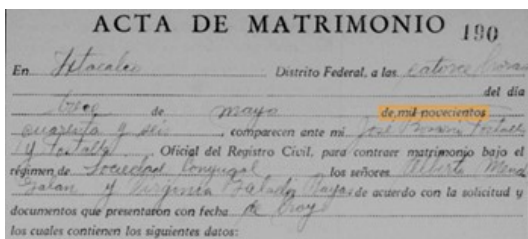 ACTA DE MATRIMONIO 190
En Ixtacalco Distrito Federal, a las catorce horas
del día
trece de mayo de mil novecientos
cuarenta y seis, comparecen ante mi José
y Oficial del Registro Civil, para contraer matrimonio bajo el
régimen de Sociedad Conyugal los señores Alberto
Galan y Virginia de acuerdo con la solicitud y
documentos que presentaron con fecha de hoy
los cuales contienen los siguientes datos: